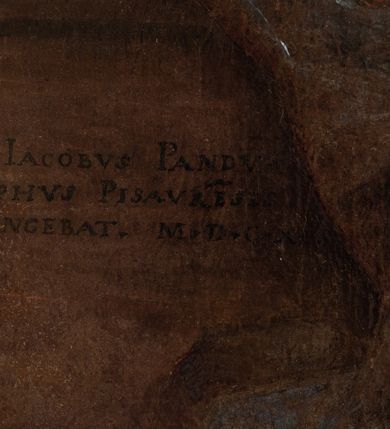 IACOBVS PANDV
PHVS PISAVRĒSIS
NGEBAT. M.D.C.X